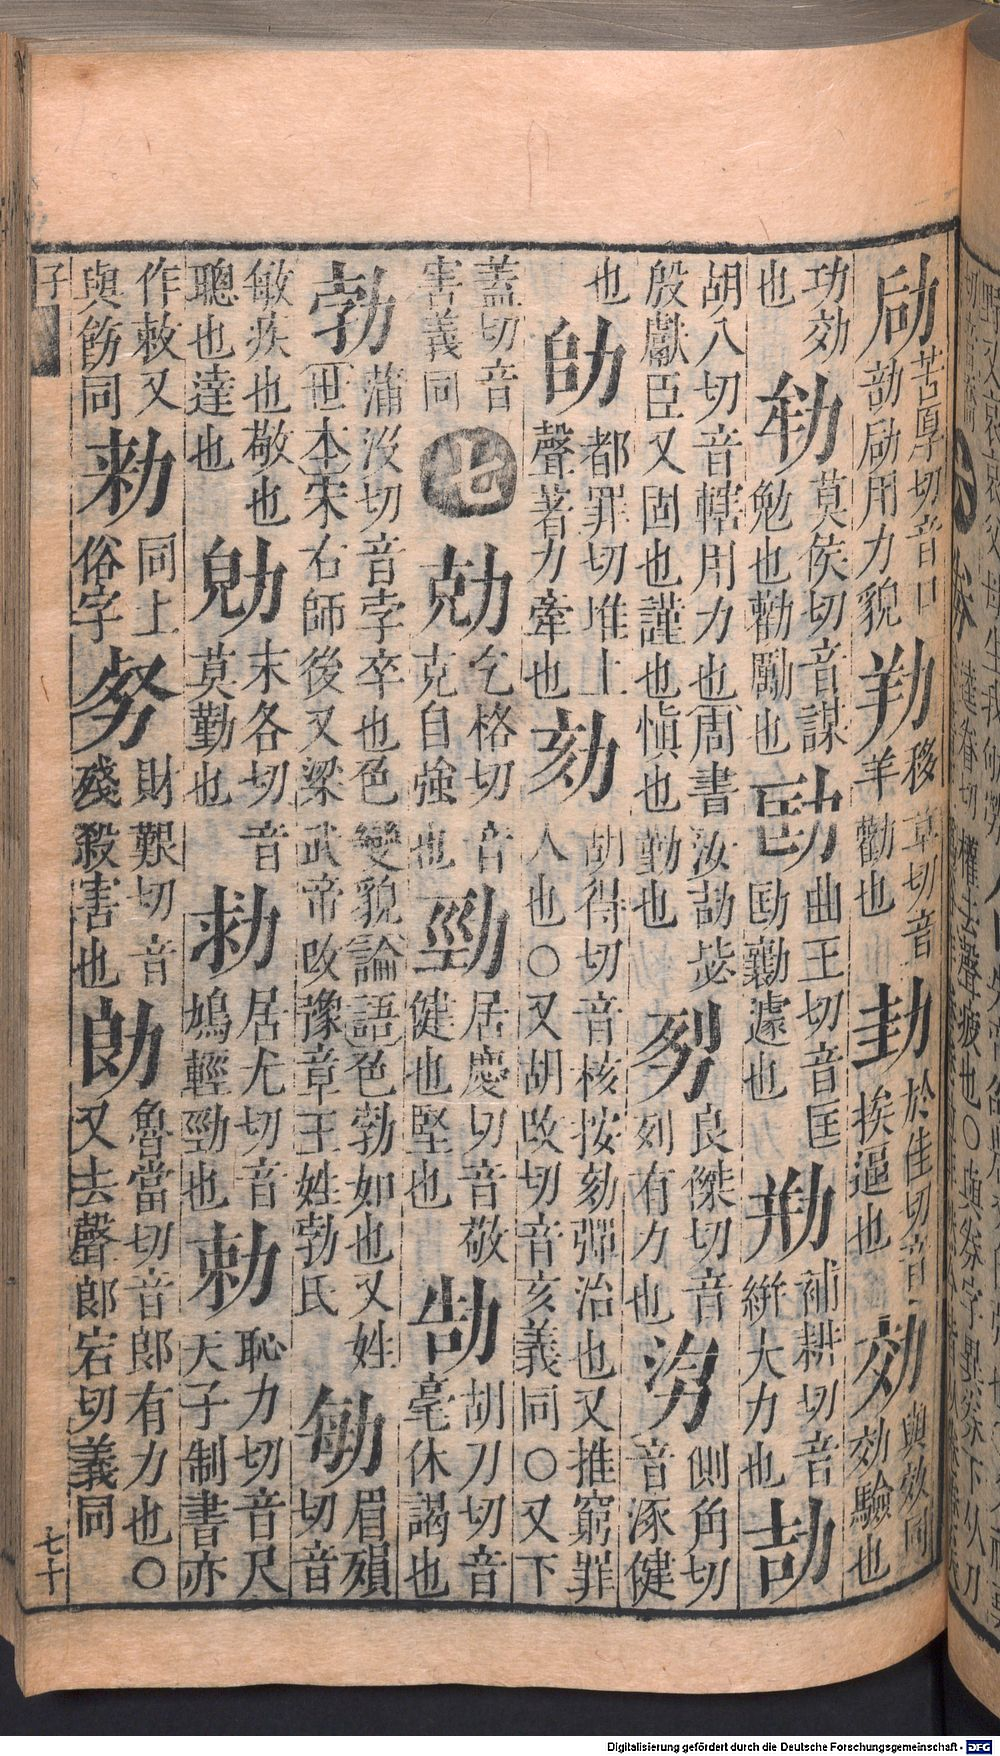 劶苦厚切音口劼劶用力貌 移章切音羊勸也 於佳切音挨逼也 効與效同効驗也
功効也 劺莫侯切音謀勉也勸勵也 劻曲王切音匡劻勷遽也 補耕切音絣大力也 劼
胡八切音轄用力也周書汝劼毖殷獻臣又固也謹也慎也勤也 良傑切音列有力也 側角切音涿健
也 都罪切堆上聲著力牽也 劾胡得切音核按劾彈治也又推窮罪人也○又胡改切音亥義同○又下
蓋切音害義同 七 勊乞格切音克自強也 勁居慶切音敬健也堅也 勂胡刀切音毫休謁也
勃蒲沒切音孛卒也色變貌論語色勃如也又姓世本宋右師後又梁武帝改豫章王姓勃氏 勄眉殞切音
敏疾也敬也聰也達也 末各切音莫勤也 居尤切音鳩輕勁也 勅恥力切音尺天子制書亦
作敕又與飭同 勑同上俗字 財艱切音殘殺害也 勆魯當切音郎有力也○又去聲郎宕切義同
子
七十
Digitalisierung gefördert durch die Deutsche Forschungsgemeinschaft - DFG